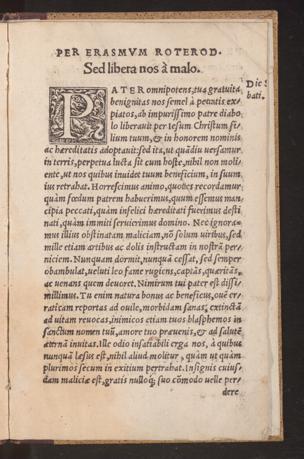 PER ERASMVM ROTEROD.
Sed libera nos à malo.
Die S
bati.
PATER omnipotens, tua gratuita
benignitas nos semel à peccatis ex/
piatos, ab impurissimo patre diabo
lo liberauit per Iesum Christum fi/
lium tuum, & in honorem nominis
ac hæreditatis adoptauit: sed ita, ut quādiu versamur
in terris, perpetua lucta sit cum hoste, nihil non moli/
ente, ut nos quibus inuidet tuum beneficium, in suum
ius retrahat. Horrescimus animo, quoties recordamur
quàm fœdum patrem habuerimus, quum essemus man/
cipia peccati, quàm infelici hæreditati fuerimus desti
nati, quàm immiti seruierimus domino. Nec ignora
mus illius obstinatam maliciam, nō solum uiribus, sed
mille etiam artibus ac dolis instructam in nostrā per/
niciem. Nunquam dormit, nunquā cessat, sed semper
obambulat, ueluti leo fame rugiens, captās, quæritās,
ac uenans quem deuoret. Nimirum tui pater est dissi/
millimus. Tu enim natura bonus ac beneficus, ouē er/
raticam reportas ad ouile, morbidam sanas, extinctā
ad uitam reuocas, inimicos etiam tuos blasphemos in
sanctum nomen tuū, amore tuo præuenis, & ad salutē
æternā inuitas. Ille odio insatiabili erga nos, à quibus
nunquā læsus est, nihil aliud molitur, quàm ut quàm
plurimos secum in exitium pertrahat. Insignis cuius/
dam maliciæ est, gratis nulloq; suo cōmodo uelle per/
dere